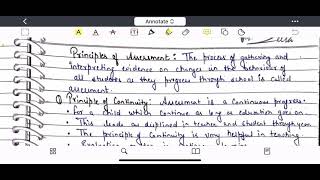 Annotate
Principles of Assessment : The process of gathering and
interpreting evidence on changes in the behaviour of
all students as they progress through school is called
assessment.
① Principle of Continuity: Assessment is a Continuous progress.
• For a child which continue as long as education goes on.
• This leads as displined in teacher and student throughyear.
• The principle of Continuity is very helpful in teaching